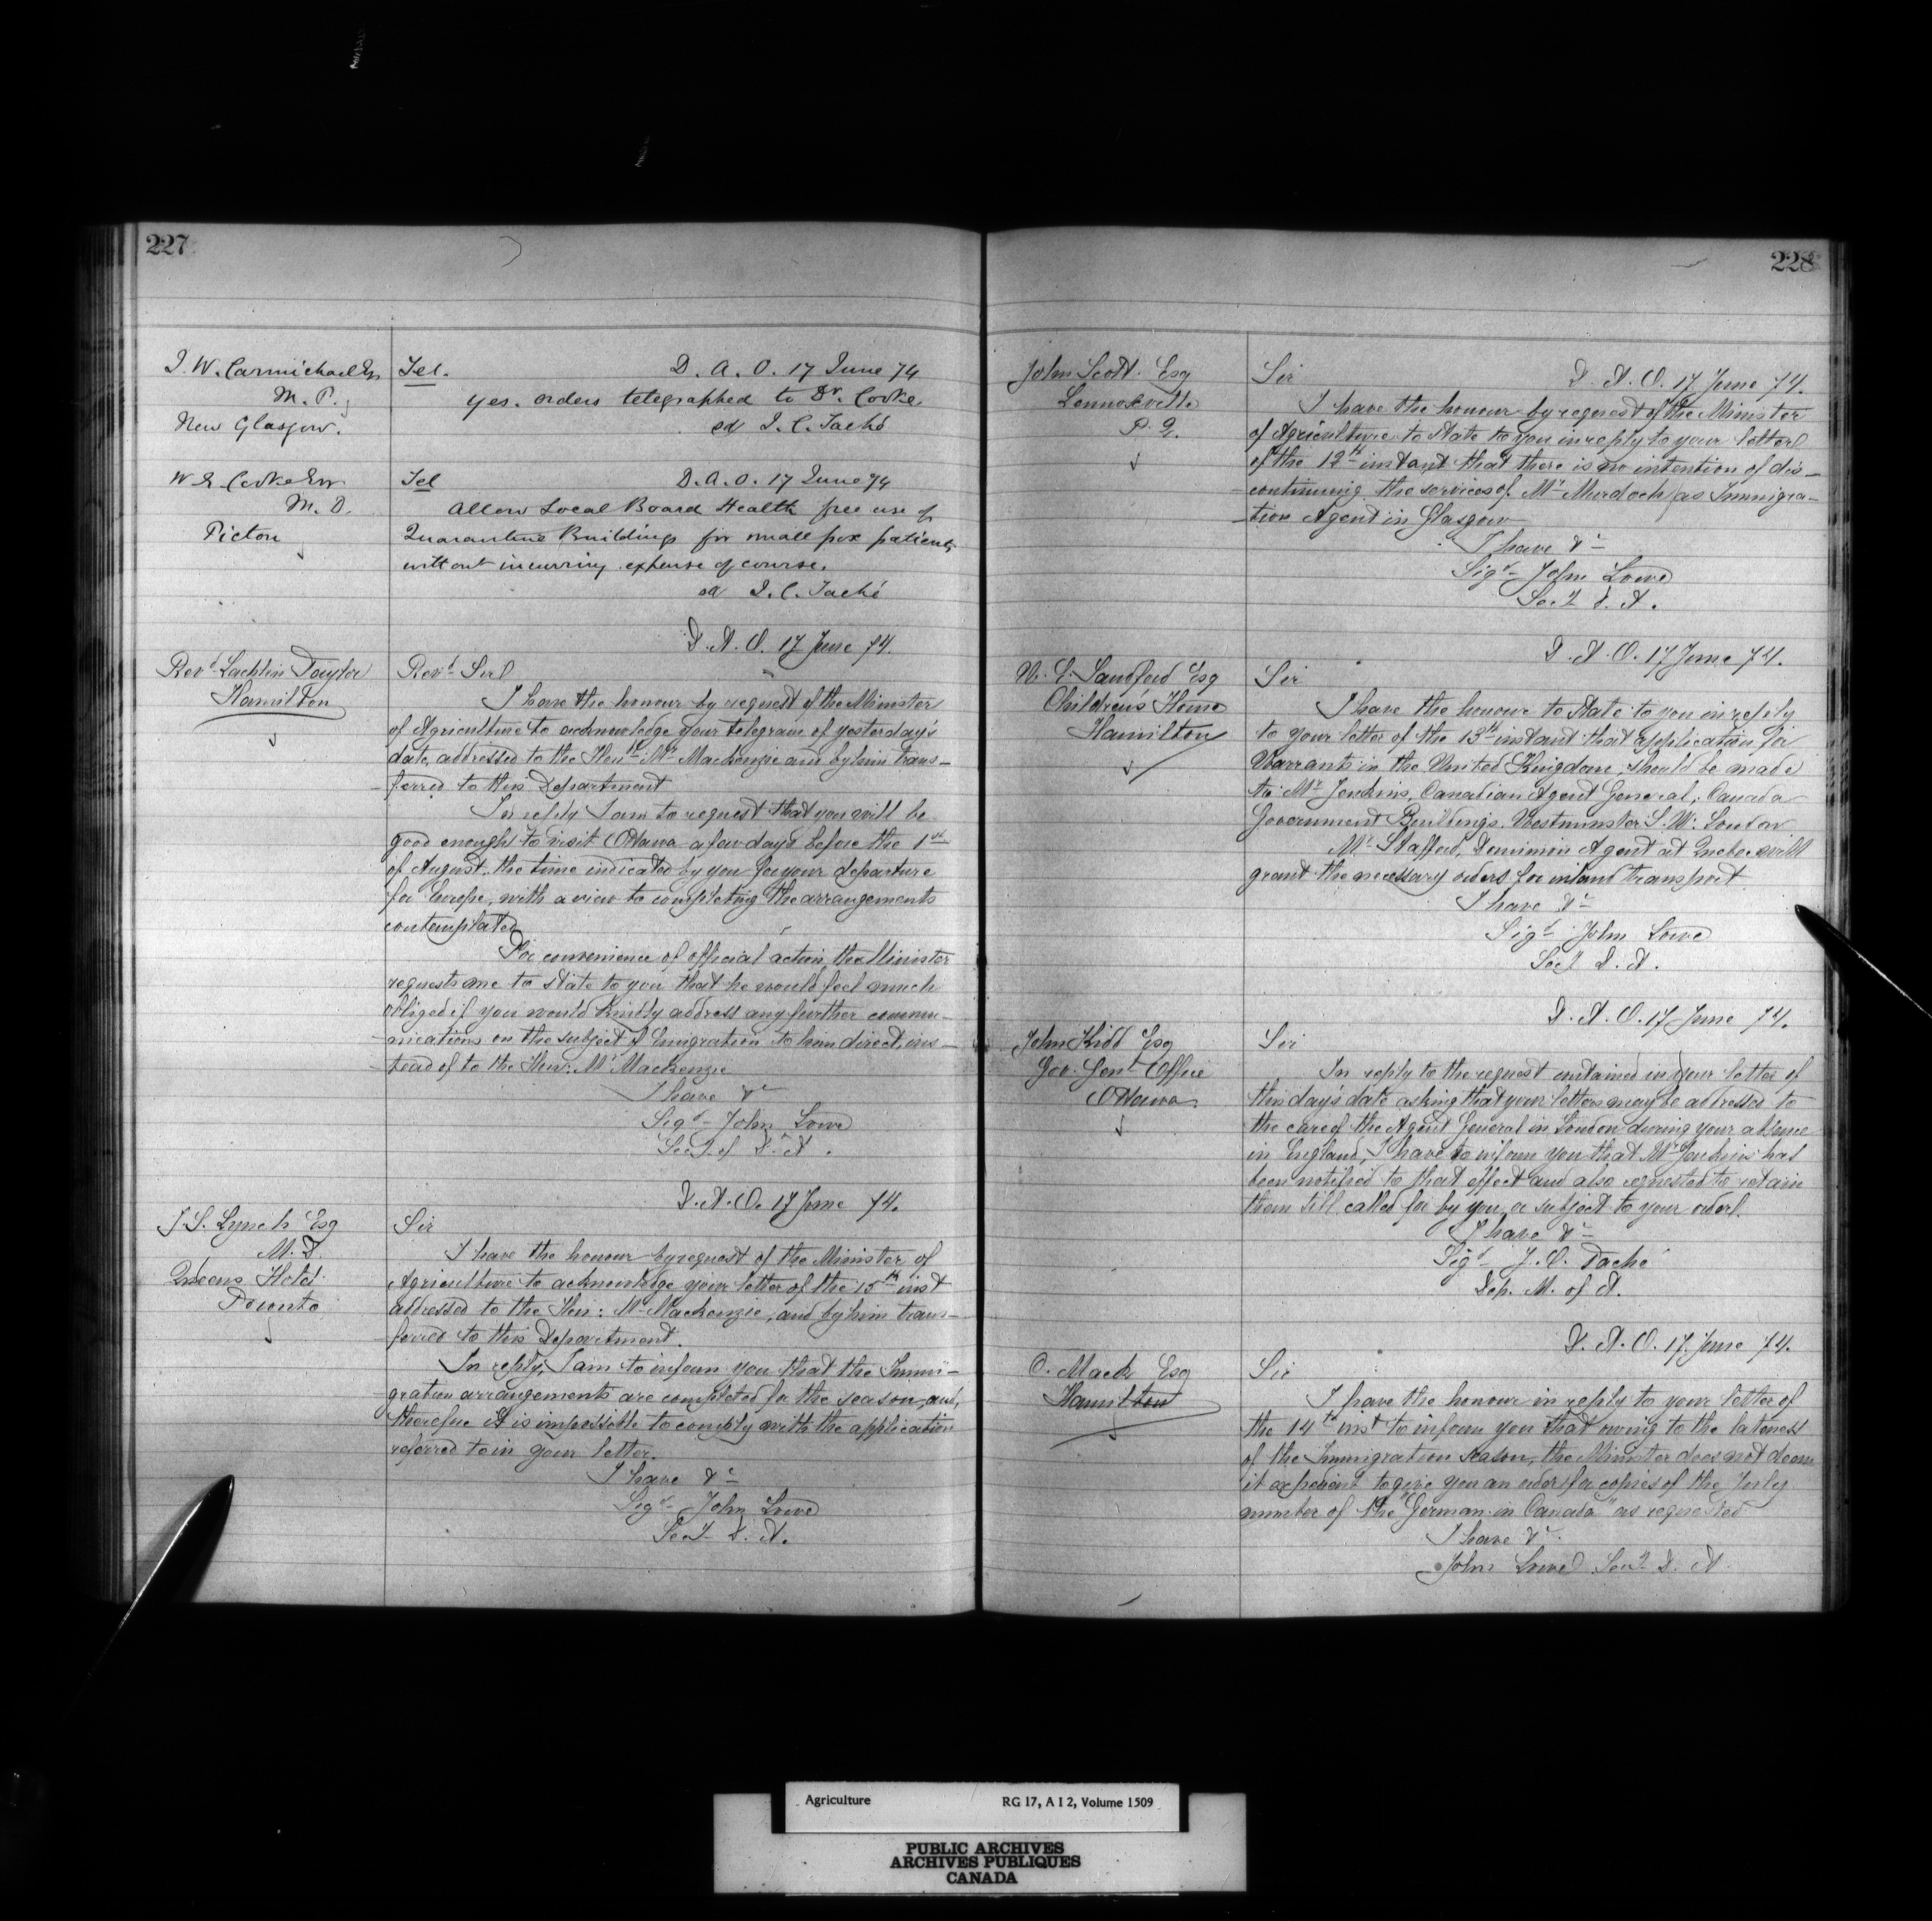 227
J. W. Carmichael Esq
M. P.
New Glasgow.
Tel. D. A. O. 17 June 74
Yes. orders telegraphed to Dr. Cooke.
sd J. C. Taché
W E Cooke Esq
M. D.
Pictou
Tel D. A. O. 17 June 74
Allow Local Board Health free use of
Quarantine Buildings for small pox patients
without incurring expense of course.
sd J. C. Taché
D. A. O. 17 June 74.
Revd Lachlin Taylor
Hamilton
Revd Sir
I have the honour by request of the Minister
of Agriculture to acknowledge your telegram of yesterday's
date, addressed to the Honble Mr Mackenzie and by him trans-
-ferred to this Department
In reply I am to request that you will be
good enough to visit Ottawa a few days before the 1st
of August, the time indicated by you for your departure
for Europe, with a view to completing the arrangements
contemplated
For convenience of official action, the Minister
requests me to state to you that he would feel much
obliged if you would kindly address any further commu-
-nications on the subject of Emigration to him direct, ins-
-tead of to the Hon: Mr Mackenzie
I have &c
Sigd John Lowe
Sect of D. A.
D. A. O. 17 June 74.
J. S. Lynch Esq
M. D.
Queens Hotel
Toronto
Sir
I have the honour by request of the Minister of
Agriculture to acknowledge your letter of the 15th inst
addressed to the Hon: Mr Mackenzie, and by him trans-
-ferred to this Department.
In reply, I am to inform you that the Immi-
gration arrangements are completed for the season, and,
therefore it is impossible to comply with the application
referred to in your letter.
I have &c
Sigd John Lowe
Sect D. A.
228
John Scott Esq
Lennoxville
P. Q.
Sir D. A. O. 17 June 74.
I have the honour by request of the Minister
of Agriculture to state to you in reply to your letter
of the 12th instant that there is no intention of dis-
-continuing the services of Mr Murdoch as Immigra-
-tion Agent in Glasgow
I have &c
Sigd John Lowe
Sect D. A.
D. A. O. 17 June 74.
W. E. Sandford Esq
Children's Home
Hamilton
Sir
I have the honour to state to you in reply
to your letter of the 13th instant that application for
Warrants in the United Kingdom, should be made
to Mr Jenkins, Canadian Agent General, Canada
Government Buildings, Westminster S. W. London
Mr Stafford, Dominion Agent at Quebec will
grant the necessary orders for inland transport
I have &c
Sigd John Lowe
Sect D. A.
D. A. O. 17 June 74.
John Kidd Esq
Gov. Genl Office
Ottawa
Sir
In reply to the request contained in your letter of
this day's date asking that your letters may be addressed to
the care of the Agent General in London during your absence
in England, I have to inform you that Mr Jenkins has
been notified to that effect and also requested to retain
them till called for by you, or subject to your order.
I have &c
Sigd J. C. Taché
Dep. M. of A.
D. A. O. 17. June 74.
C. Mack Esq
Hamilton
Sir
I have the honour in reply to your letter of
the 14th inst to inform you that owing to the lateness
of the Immigration season, the Minister does not deem
it expedient to give you an order for copies of the July
number of the "German in Canada" as requested
I have &c
John Lowe Sect D. A.
Agriculture RG 17, A I 2, Volume 1509
PUBLIC ARCHIVES
ARCHIVES PUBLIQUES
CANADA